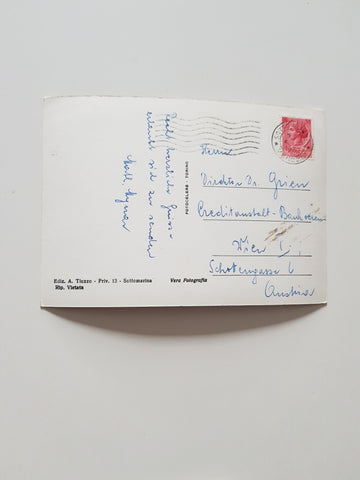 Recht herzliche Grüsse
erlaubt sich zu senden
Herrn
Direktor Dr. Grien
Creditanstalt-Bankverein
Wien I.,
Schottengasse 6
Austria
FOTOCELERE - TORINO
Ediz. A. Tiozzo - Priv. 13 - Sottomarina
Rip. Vietata
Vera Fotografia